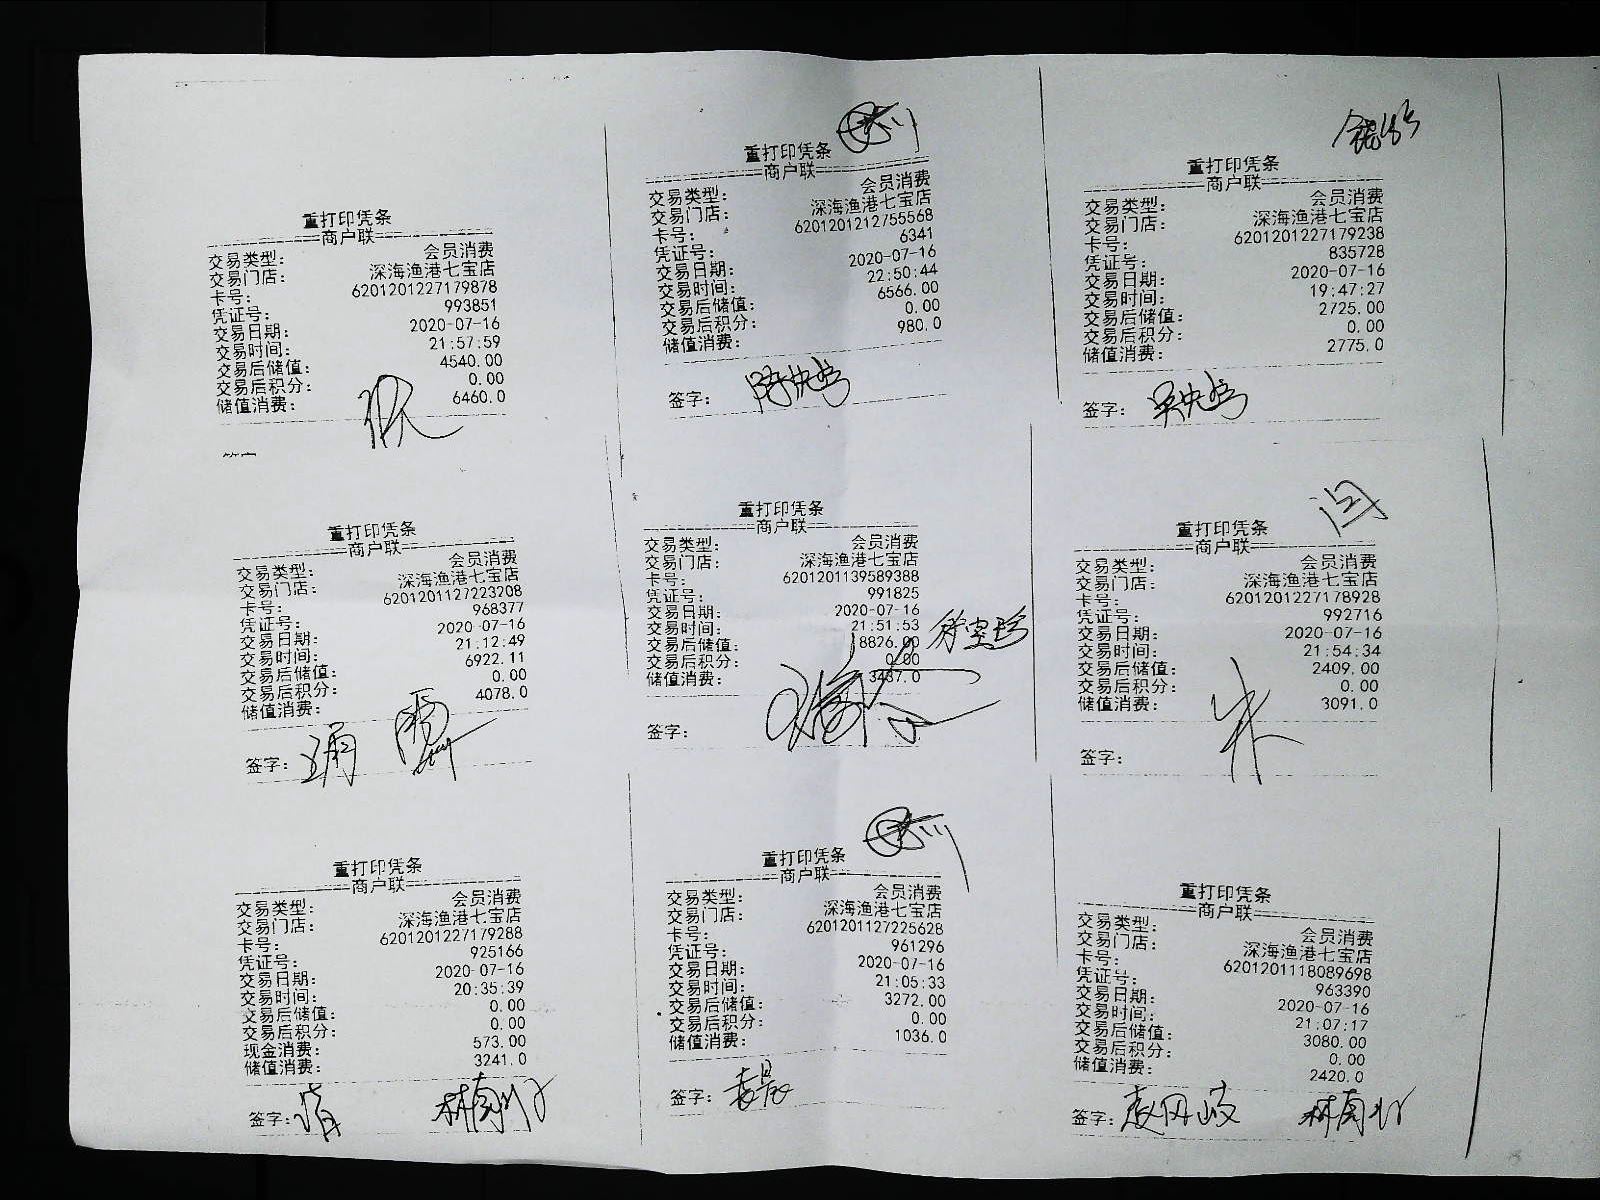 重打印凭条
商户联
交易类型: 会员消费
交易门店: 深海渔港七宝店
卡号: 6201201227179878
凭证号: 993851
交易日期: 2020-07-16
交易时间: 21:57:59
交易后储值: 4540.00
交易后积分: 0.00
储值消费: 6460.0
重打印凭条
商户联
交易类型: 会员消费
交易门店: 深海渔港七宝店
卡号: 6201201212755568
凭证号: 6341
交易日期: 2020-07-16
交易时间: 22:50:44
交易后储值: 6566.00
交易后积分: 0.00
储值消费: 980.0
签字:
重打印凭条
商户联
交易类型: 会员消费
交易门店: 深海渔港七宝店
卡号: 6201201227179238
凭证号: 835728
交易日期: 2020-07-16
交易时间: 19:47:27
交易后储值: 2725.00
交易后积分: 0.00
储值消费: 2775.0
签字:
重打印凭条
商户联
交易类型: 会员消费
交易门店: 深海渔港七宝店
卡号: 6201201127223208
凭证号: 968377
交易日期: 2020-07-16
交易时间: 21:12:49
交易后储值: 6922.11
交易后积分: 0.00
储值消费: 4078.0
签字:
重打印凭条
商户联
交易类型: 会员消费
交易门店: 深海渔港七宝店
卡号: 6201201139589388
凭证号: 991825
交易日期: 2020-07-16
交易时间: 21:51:53
交易后储值: 8826.00
交易后积分: 0.00
储值消费: 3437.0
签字:
重打印凭条
商户联
交易类型: 会员消费
交易门店: 深海渔港七宝店
卡号: 6201201227178928
凭证号: 992716
交易日期: 2020-07-16
交易时间: 21:54:34
交易后储值: 2409.00
交易后积分: 0.00
储值消费: 3091.0
签字:
重打印凭条
商户联
交易类型: 会员消费
交易门店: 深海渔港七宝店
卡号: 6201201227179288
凭证号: 925166
交易日期: 2020-07-16
交易时间: 20:35:39
交易后储值: 0.00
交易后积分: 0.00
现金消费: 573.00
储值消费: 3241.0
签字:
重打印凭条
商户联
交易类型: 会员消费
交易门店: 深海渔港七宝店
卡号: 6201201127225628
凭证号: 961296
交易日期: 2020-07-16
交易时间: 21:05:33
交易后储值: 3272.00
交易后积分: 0.00
储值消费: 1036.0
签字:
重打印凭条
商户联
交易类型: 会员消费
交易门店: 深海渔港七宝店
卡号: 6201201118089698
凭证号: 963390
交易日期: 2020-07-16
交易时间: 21:07:17
交易后储值: 3080.00
交易后积分: 0.00
储值消费: 2420.0
签字: